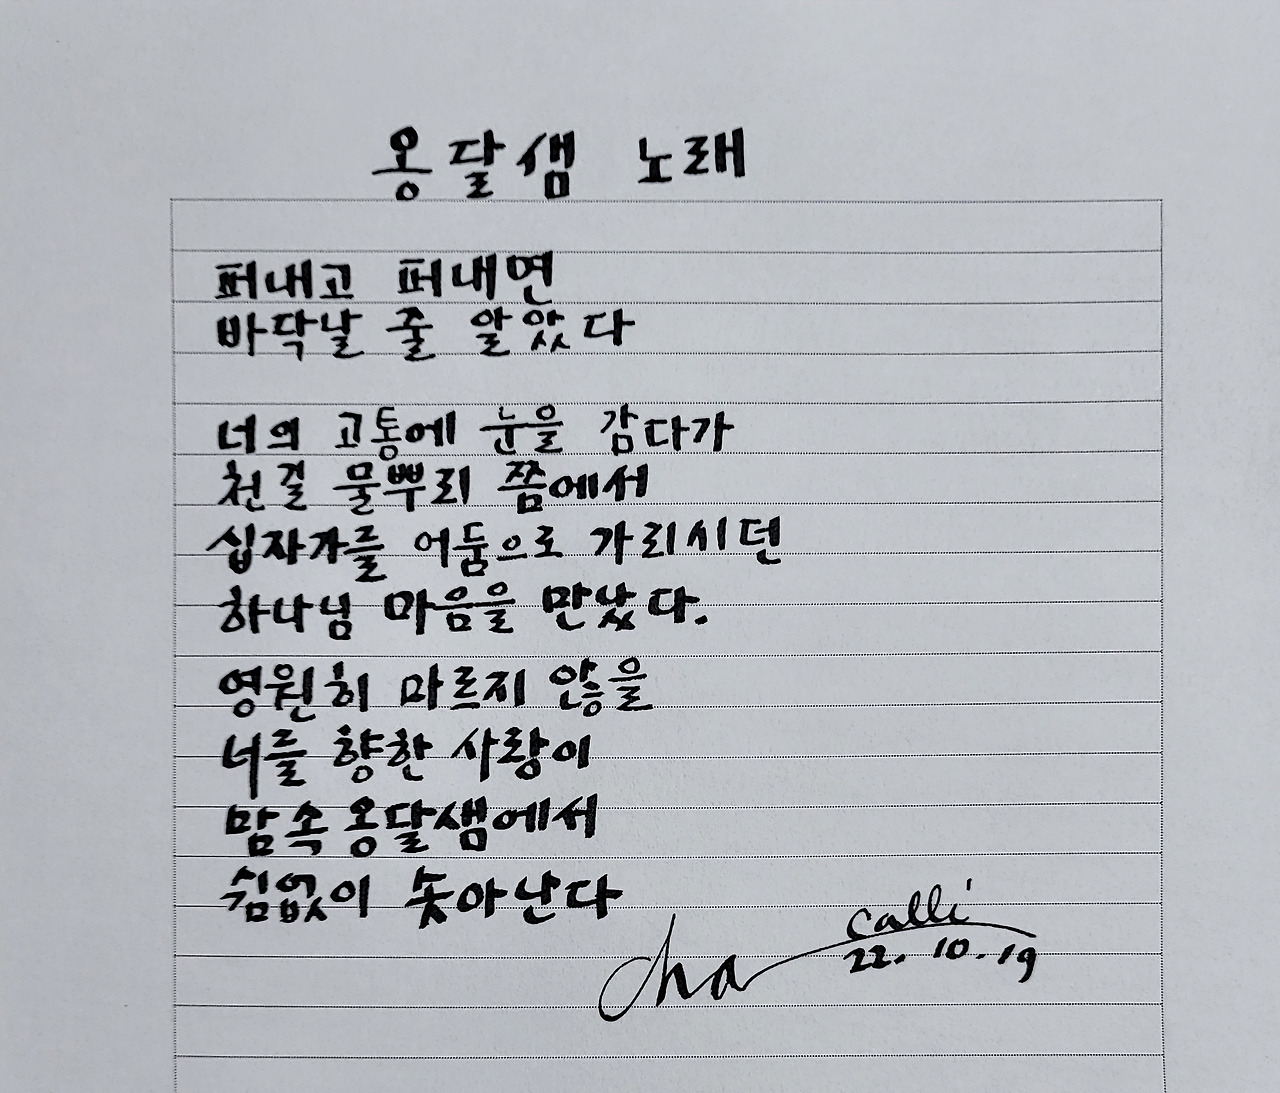 옹달샘 노래
퍼내고 퍼내면
바닥날 줄 알았다
너의 고통에 눈을 감다가
천길 물뿌리 쯤에서
십자가를 어둠으로 가리시던
하나님 마음을 만났다.
영원히 마르지 않을
너를 향한 사랑이
맘속 옹달샘에서
쉼없이 솟아난다
cha calli
22. 10. 19